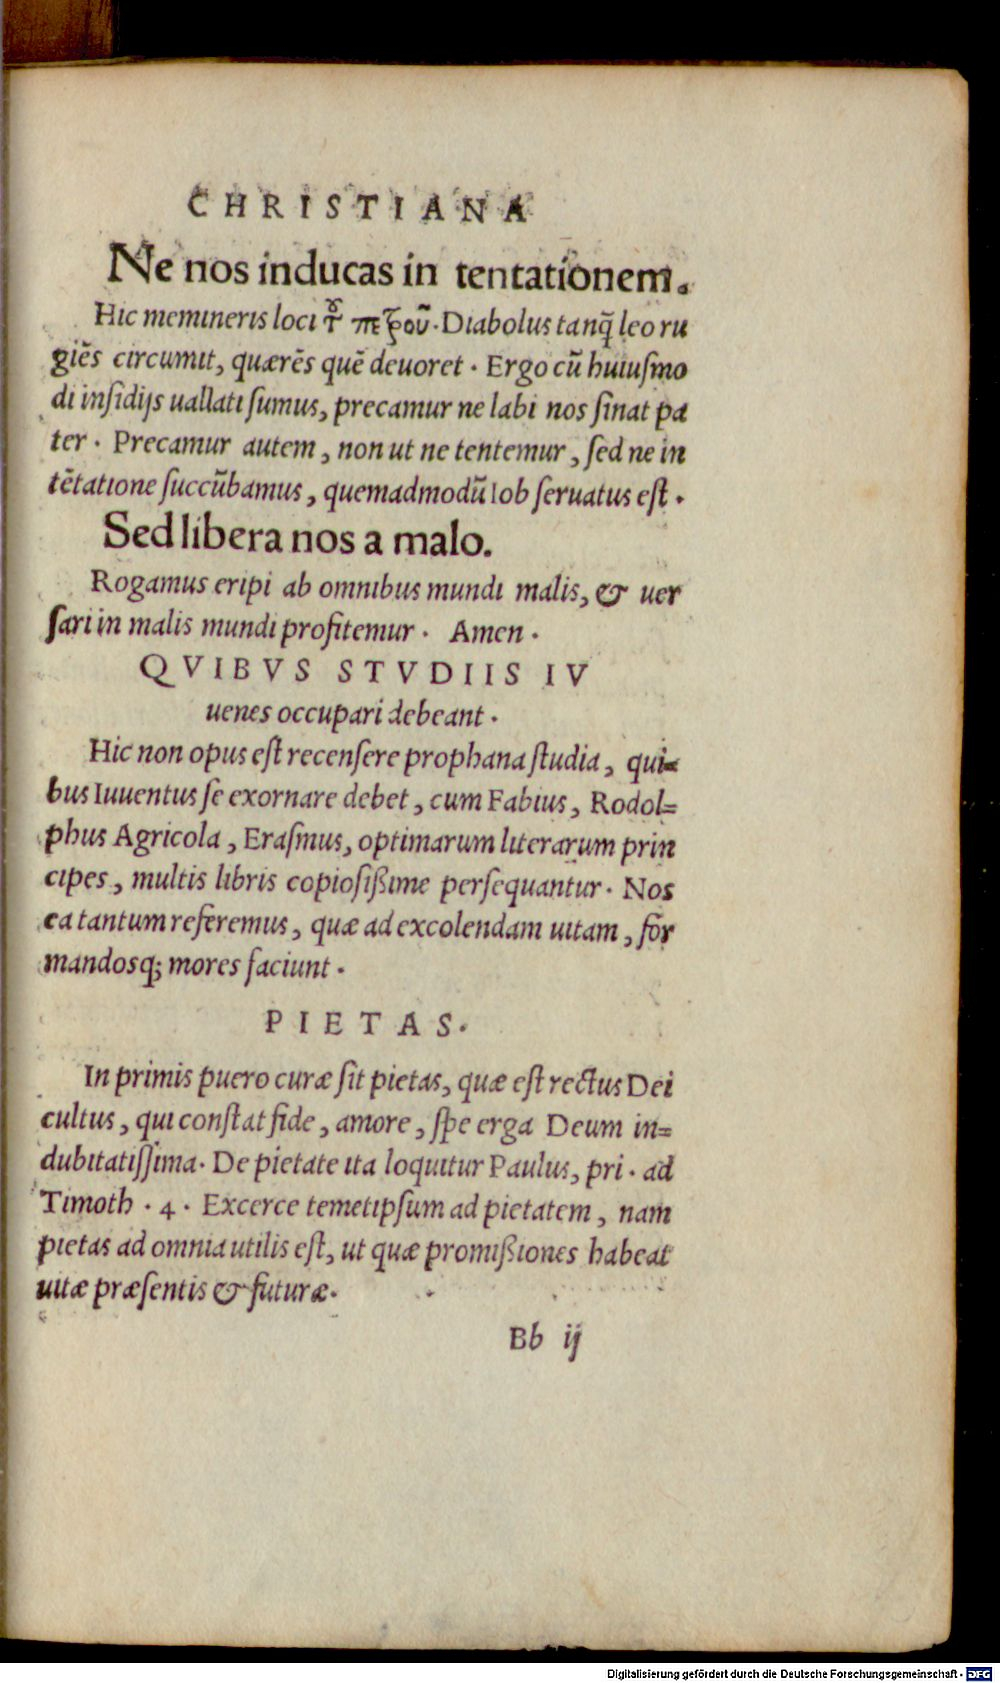 CHRISTIANA
Ne nos inducas in tentationem.
Hic memineris loci τ͂ πέτρου. Diabolus tanq̃ leo ru
giẽs circumit, quærẽs quẽ deuoret. Ergo cũ huiuſmo
di inſidijs uallati ſumus, precamur ne labi nos ſinat pa
ter. Precamur autem, non ut ne tentemur, ſed ne in
tẽtatione ſuccũbamus, quemadmodũ Iob ſeruatus eſt.
Sed libera nos a malo.
Rogamus eripi ab omnibus mundi malis, & uer
ſari in malis mundi profitemur. Amen.
QVIBVS STVDIIS IV
uenes occupari debeant.
Hic non opus eſt recenſere prophana ſtudia, qui-
bus Iuuentus ſe exornare debet, cum Fabius, Rodol=
phus Agricola, Eraſmus, optimarum literarum prin
cipes, multis libris copioſißime perſequantur. Nos
ea tantum referemus, quæ ad excolendam uitam, for
mandosq; mores faciunt.
PIETAS.
In primis puero curæ ſit pietas, quæ eſt rectus Dei
cultus, qui conſtat fide, amore, ſpe erga Deum in=
dubitatiſſima. De pietate ita loquitur Paulus, pri. ad
Timoth. 4. Excerce temetipſum ad pietatem, nam
pietas ad omnia utilis eſt, ut quæ promißiones habeat
uitæ præſentis & futuræ.
Bb ij
Digitalisierung gefördert durch die Deutsche Forschungsgemeinschaft - DFG